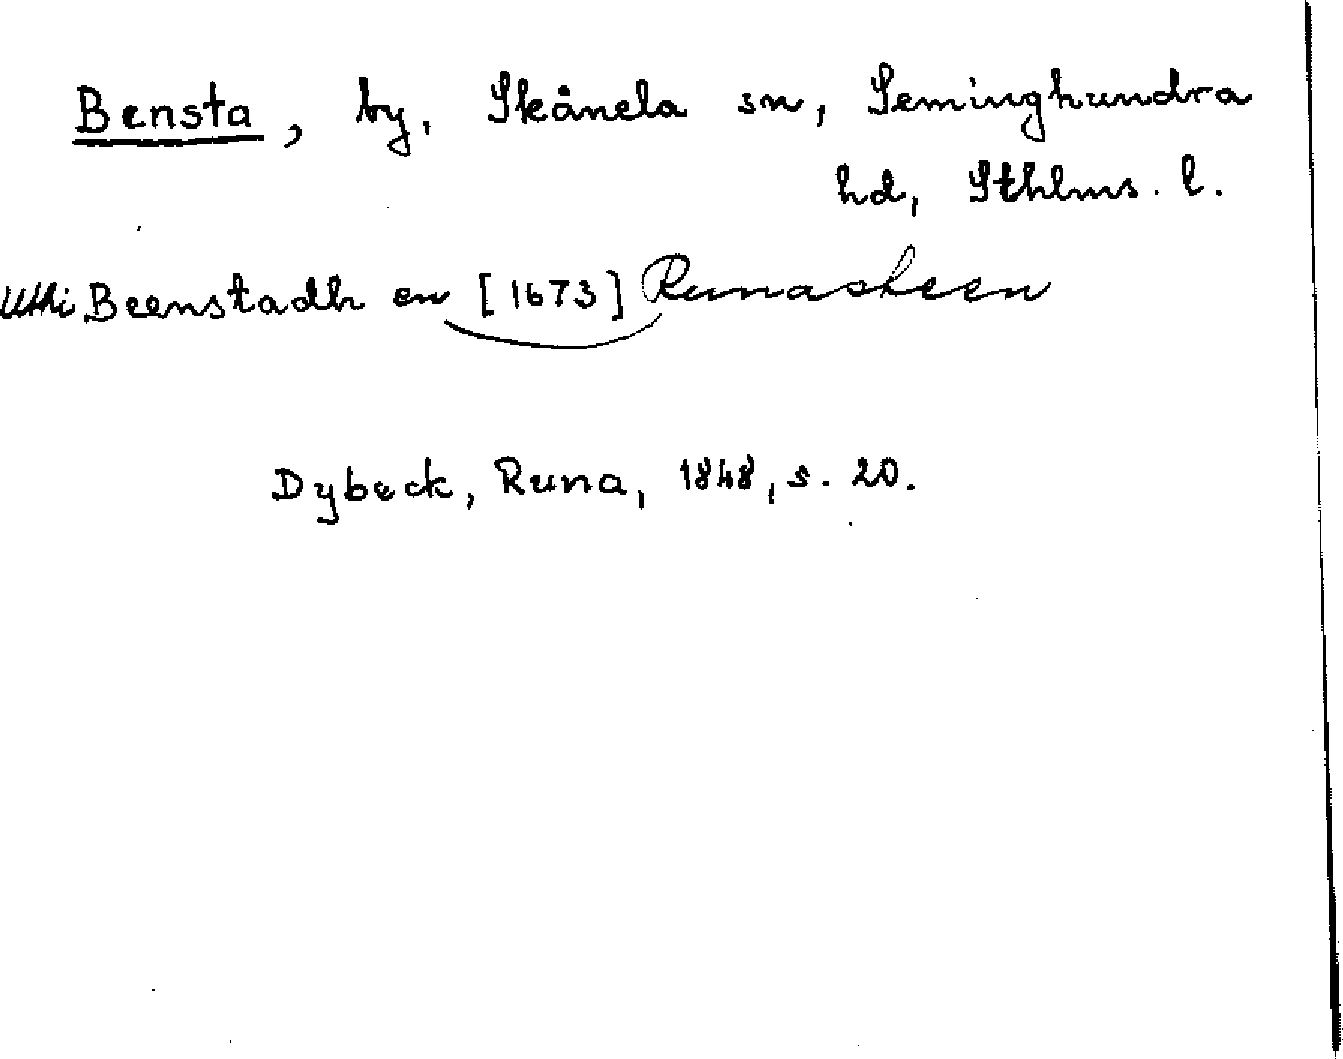 Bensta, by, Skånela sn, Seminghundra
hd, Sthlms. l.
Uthi Beenstadh en [1673] Runasteen
Dybeck, Runa, 1848, s. 20.